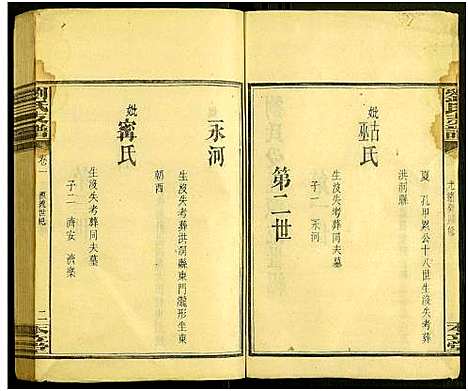 夏 孔甲累公十八世生没失考葬
洪洞縣
妣祜氏
生没失考葬同夫墓
子一 永河
第二世
一永河
生没失考葬洪洞縣東門龍形坐東
朝酉
妣甯氏
生没失考葬同夫墓
子二 濟安 濟樂
劉氏宗譜
卷一
二